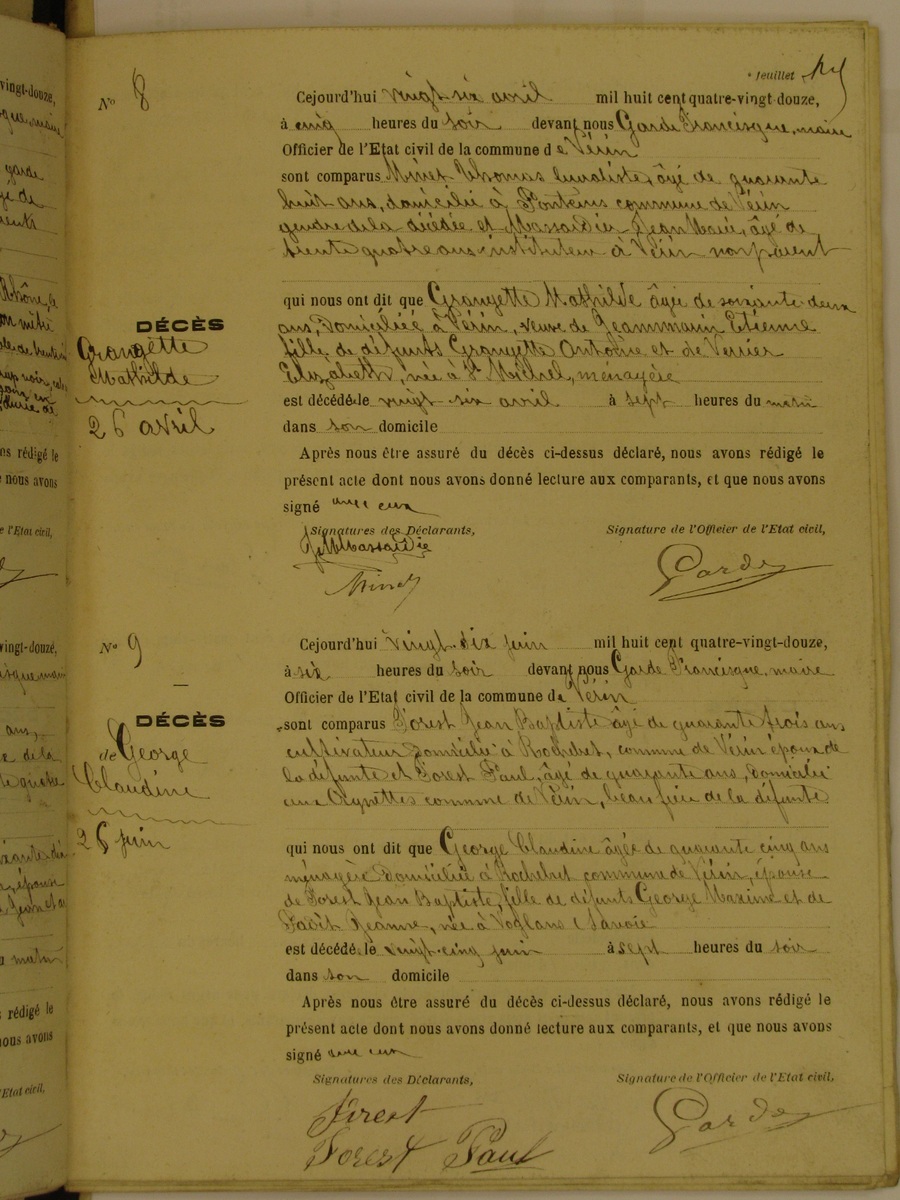 feuillet
Nº 8
Cejourd'hui vingt-six avril mil huit cent quatre-vingt-douze,
à cinq heures du soir devant nous Garde Francisque, maire
Officier de l'Etat civil de la commune de Vérin
sont comparus Minet Thomas âgé de quarante
huit ans, domicilié à commune de Vérin
gendre de la décédée et Massardier Jean Marie, âgé de
trente quatre ans instituteur à Vérin non parent
qui nous ont dit que Grangette Mathilde âgée de soixante-deux
ans, Domiciliée à Vérin, veuve de Jeammarin Etienne
fille de défunts Grangette Antoine et de Verrier
Elizabeth, née à St Michel, menagère
est décédé le vingt-six avril à sept heures du matin
dans son domicile
DÉCÈS
Grangette
Mathilde
26 avril
Après nous être assuré du décès ci-dessus déclaré, nous avons rédigé le
présent acte dont nous avons donné lecture aux comparants, et que nous avons
signé avec eux
Signatures des Déclarants, Signature de l'Officier de l'Etat civil,
JMMassardier
Minet
Garde
Nº 9
Cejourd'hui vingt-six juin mil huit cent quatre-vingt-douze,
à six heures du soir devant nous Garde Francisque, maire
Officier de l'Etat civil de la commune de Vérin
sont comparus Forest Jean Baptiste âgé de quarante trois ans
cultivateur domicilié à Rochebet, commune de Vérin époux de
la défunte et Forest Paul, âgé de quarante ans, domicilié
aux commune de Vérin, beau frère de la défunte
DÉCÈS
de George
Claudine
26 juin
qui nous ont dit que George Claudine âgée de quarante cinq ans
ménagère Domiciliée à Rochebet commune de Vérin, épouse
de Forest Jean Baptiste, fille de défunts George Maxime et de
Jeanne, née à Voglans (Savoie
est décédé le vingt-cinq juin à sept heures du soir
dans son domicile
Après nous être assuré du décès ci-dessus déclaré, nous avons rédigé le
présent acte dont nous avons donné lecture aux comparants, et que nous avons
signé avec eux
Signatures des Déclarants, Signature de l'Officier de l'Etat civil,
Forest
Forest Paul
Garde